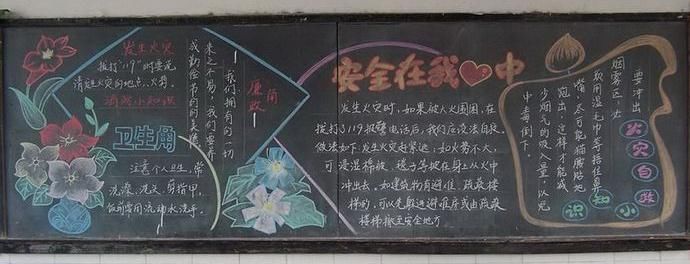 发生火灾
拨打“119”时要说
清楚火灾的地点、火势
消防小知识
卫生角
注意个人卫生，常
洗澡、洗头、剪指甲，
饭前常用流动水洗手。
廉政角
我们拥有的一切
来之不易，我们要养
成勤俭节约的美德
安全在我心中
发生火灾时，如果被大火围困，在
拨打了119报警电话后，我们应设法自救，
做法如下：发生火灾赶紧逃；如火势不大，
可浸湿棉被、毯子等披在身上从火中
冲出去。如建筑物有避难、疏散楼
梯的，可以先躲进避难
楼梯撤至安全地方
要冲出
烟雾区，必
须用湿毛巾等捂住鼻
嘴，尽可能猫腰贴地
跑出，这样才能减
少烟气的吸入量，以免
中毒倒下。
火灾自救
小知识